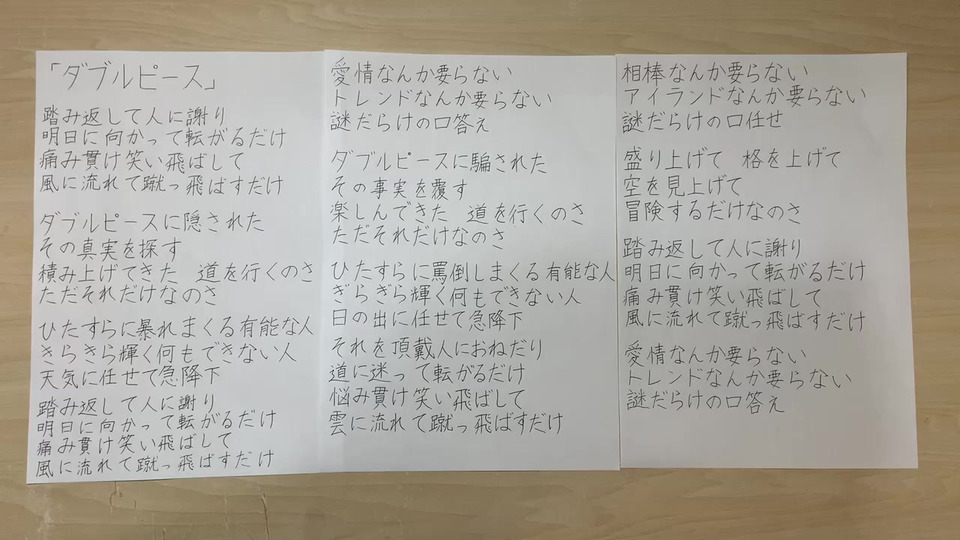 「ダブルピース」
踏み返して人に謝り
明日に向かって転がるだけ
痛み貫け笑い飛ばして
風に流れて蹴っ飛ばすだけ
ダブルピースに隠された
その真実を探す
積み上げてきた　道を行くのさ
ただそれだけなのさ
ひたすらに暴れまくる有能な人
きらきら輝く何もできない人
天気に任せて急降下
踏み返して人に謝り
明日に向かって転がるだけ
痛み貫け笑い飛ばして
風に流れて蹴っ飛ばすだけ
愛情なんか要らない
トレンドなんか要らない
謎だらけの口答え
ダブルピースに騙された
その事実を覆す
楽しんできた　道を行くのさ
ただそれだけなのさ
ひたすらに罵倒しまくる有能な人
ぎらぎら輝く何もできない人
日の出に任せて急降下
それを頂戴人におねだり
道に迷って転がるだけ
悩み貫け笑い飛ばして
雲に流れて蹴っ飛ばすだけ
相棒なんか要らない
アイランドなんか要らない
謎だらけの口任せ
盛り上げて　格を上げて
空を見上げて
冒険するだけなのさ
踏み返して人に謝り
明日に向かって転がるだけ
痛み貫け笑い飛ばして
風に流れて蹴っ飛ばすだけ
愛情なんか要らない
トレンドなんか要らない
謎だらけの口答え